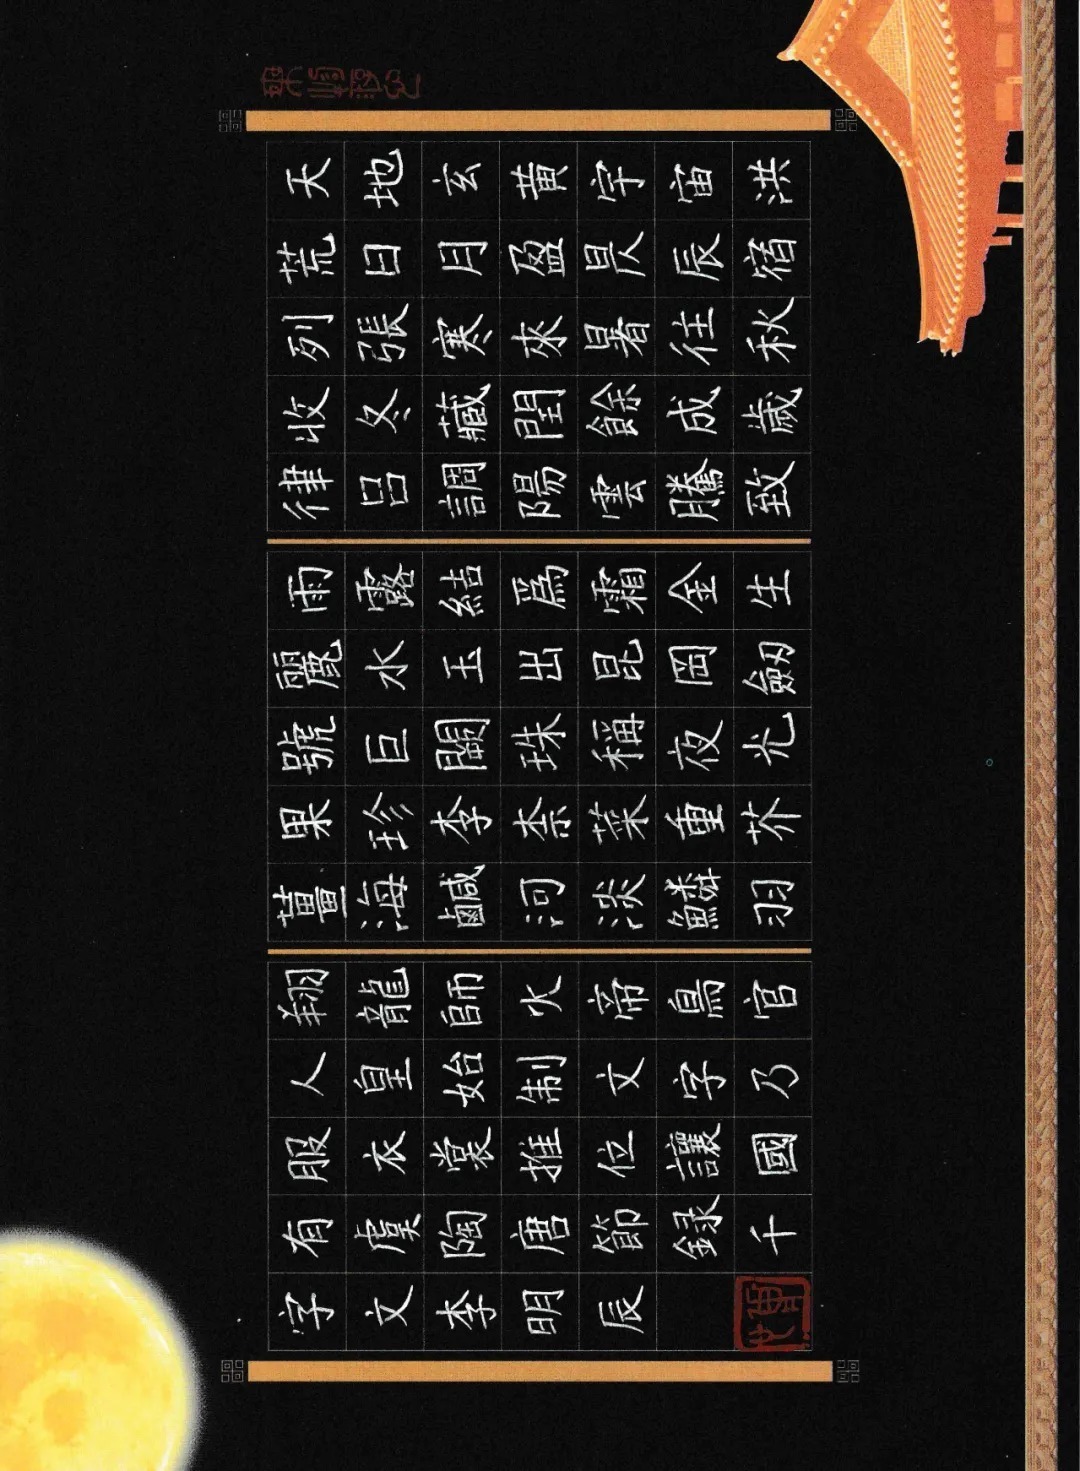 天地玄黄宇宙洪
荒日月盈昃辰宿
列張寒來暑往秋
收冬藏閏餘成歲
律呂調陽雲騰致
雨露結爲霜金生
麗水玉出昆岡劒
號巨闕珠稱夜光
果珍李柰菜重芥
薑海鹹河淡鱗羽
翔龍師火帝鳥官
人皇始制文字乃
服衣裳推位讓國
有虞陶唐節録千
字文李明辰